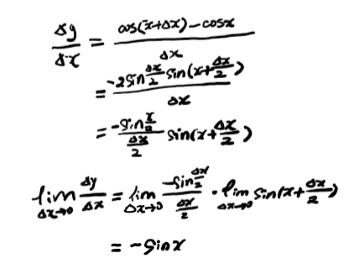 Δy/Δx = (cos(x+Δx)-cosx)/Δx
= (-2sin Δx/2 sin(x+Δx/2))/Δx
= (-sin x/2)/(Δx/2) sin(x+Δx/2)
lim Δx→0 Δy/Δx = lim Δx→0 (-sin Δx/2)/(Δx/2) · lim Δx→0 sin(x+Δx/2)
= -sinx